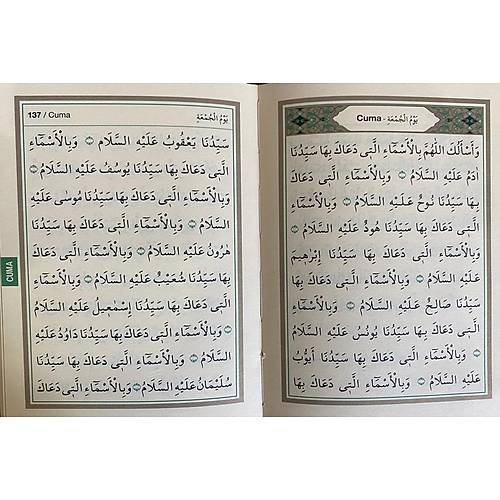 Cuma - يَوْمُ الْجُمْعَةِ
وَاَسْأَلُكَ اللّٰهُمَّ بِالْاَسْمَٓاءِ الَّتِى دَعَاكَ بِهَا سَيِّدُنَا
اٰدَمُ عَلَيْهِ السَّلَامُ وَبِالْاَسْمَٓاءِ الَّتِى دَعَاكَ
بِهَا سَيِّدُنَا نُوحٌ عَلَيْهِ السَّلَامُ وَبِالْاَسْمَٓاءِ
الَّتِى دَعَاكَ بِهَا سَيِّدُنَا هُودٌ عَلَيْهِ السَّلَامُ
وَبِالْاَسْمَٓاءِ الَّتِى دَعَاكَ بِهَا سَيِّدُنَا اِبْرٰهِيمُ
عَلَيْهِ السَّلَامُ وَبِالْاَسْمَٓاءِ الَّتِى دَعَاكَ بِهَا
سَيِّدُنَا صَالِحٌ عَلَيْهِ السَّلَامُ وَبِالْاَسْمَٓاءِ
الَّتِى دَعَاكَ بِهَا سَيِّدُنَا يُونُسُ عَلَيْهِ السَّلَامُ
وَبِالْاَسْمَٓاءِ الَّتِى دَعَاكَ بِهَا سَيِّدُنَا اَيُّوبُ
عَلَيْهِ السَّلَامُ وَبِالْاَسْمَٓاءِ الَّتِى دَعَاكَ بِهَا
137 / Cuma يَوْمُ الْجُمْعَةِ
سَيِّدُنَا يَعْقُوبُ عَلَيْهِ السَّلَام وَبِالْاَسْمَٓاءِ
الَّتِى دَعَاكَ بِهَا سَيِّدُنَا يُوسُفُ عَلَيْهِ السَّلَامُ
وَبِالْاَسْمَٓاءِ الَّتِى دَعَاكَ بِهَا سَيِّدُنَا مُوسٰى عَلَيْهِ
السَّلَامُ وَبِالْاَسْمَٓاءِ الَّتِى دَعَاكَ بِهَا سَيِّدُنَا
هٰرُونُ عَلَيْهِ السَّلَامُ وَبِالْاَسْمَٓاءِ الَّتِى دَعَاكَ
بِهَا سَيِّدُنَا شُعَيْبٌ عَلَيْهِ السَّلَامُ وَبِالْاَسْمَٓاءِ
الَّتِى دَعَاكَ بِهَا سَيِّدُنَا اِسْمٰعِيلُ عَلَيْهِ السَّلَامُ
وَبِالْاَسْمَٓاءِ الَّتِى دَعَاكَ بِهَا سَيِّدُنَا دَاوُدُ عَلَيْهِ
السَّلَامُ وَبِالْاَسْمَٓاءِ الَّتِى دَعَاكَ بِهَا سَيِّدُنَا
سُلَيْمَانُ عَلَيْهِ السَّلَامُ وَبِالْاَسْمَٓاءِ الَّتِى دَعَاكَ
CUMA